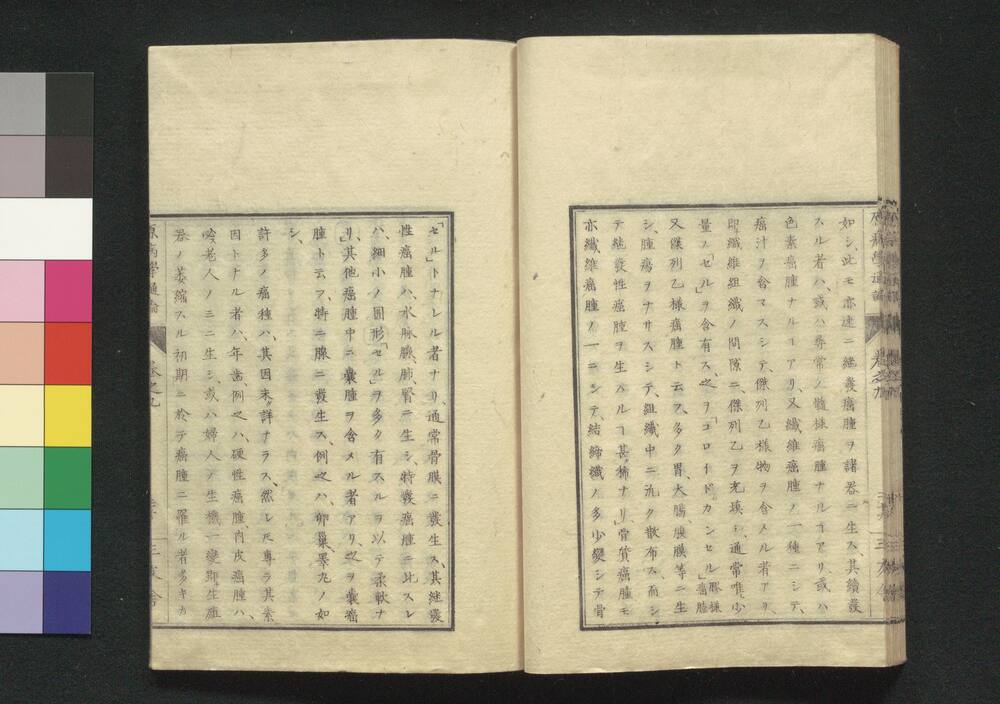 如シ、此モ亦速ニ継發癌腫ヲ諸器ニ生ス、其續發
スル者ハ、或ハ尋常ノ髓様癌腫ナルヿアリ、或ハ
色素癌腫ナルヿアリ、又纖維癌腫ノ一種ニシテ、
癌汁ヲ含マスシテ、傑列乙様物ヲ含メル者アリ、
即纖維組織ノ間隙ニ、傑列乙ヲ充塡シ、通常唯少
量ノ「セル」ヲ含有ス、之ヲ「コロイードカンセル」膠様癌腫
又傑列乙様癌腫ト云フ、多ク胃、大腸、腹膜等ニ生
シ、腫瘍ヲナサスシテ、組織中ニ汎ク散布ス、而シ
テ繼發性癌腫ヲ生スルヿ甚稀ナリ、骨質癌腫モ
亦纖維癌腫ノ一ニシテ、結締織ノ多少變シテ骨
「セル」トナレル者ナリ、通常骨膜ニ發生ス、其継發
性癌腫ハ、水脉腺、肺、腎ニ生シ、特發癌腫ニ比スレ
ハ、細小ノ圓形「セル」ヲ多ク有スルヲ以テ柔軟ナ
リ、其他癌腫中ニ嚢腫ヲ含メル者アリ、之ヲ嚢癌
腫ト云フ、特ニ腺ニ發生ス、例之ハ、卵巢、睾丸ノ如
シ、
許多ノ癌種ハ、其因未詳ナラス、然レ𪜈專ラ其素
因トナル者ハ、年齒、例之ハ、硬性癌腫、内皮癌腫ハ、
唯老人ノミニ生シ、或ハ婦人ノ生機一變期、生殖
器ノ萎縮スル初期ニ於テ癌腫ニ罹ル者多キカ
原病學通論
卷之九
三友舍